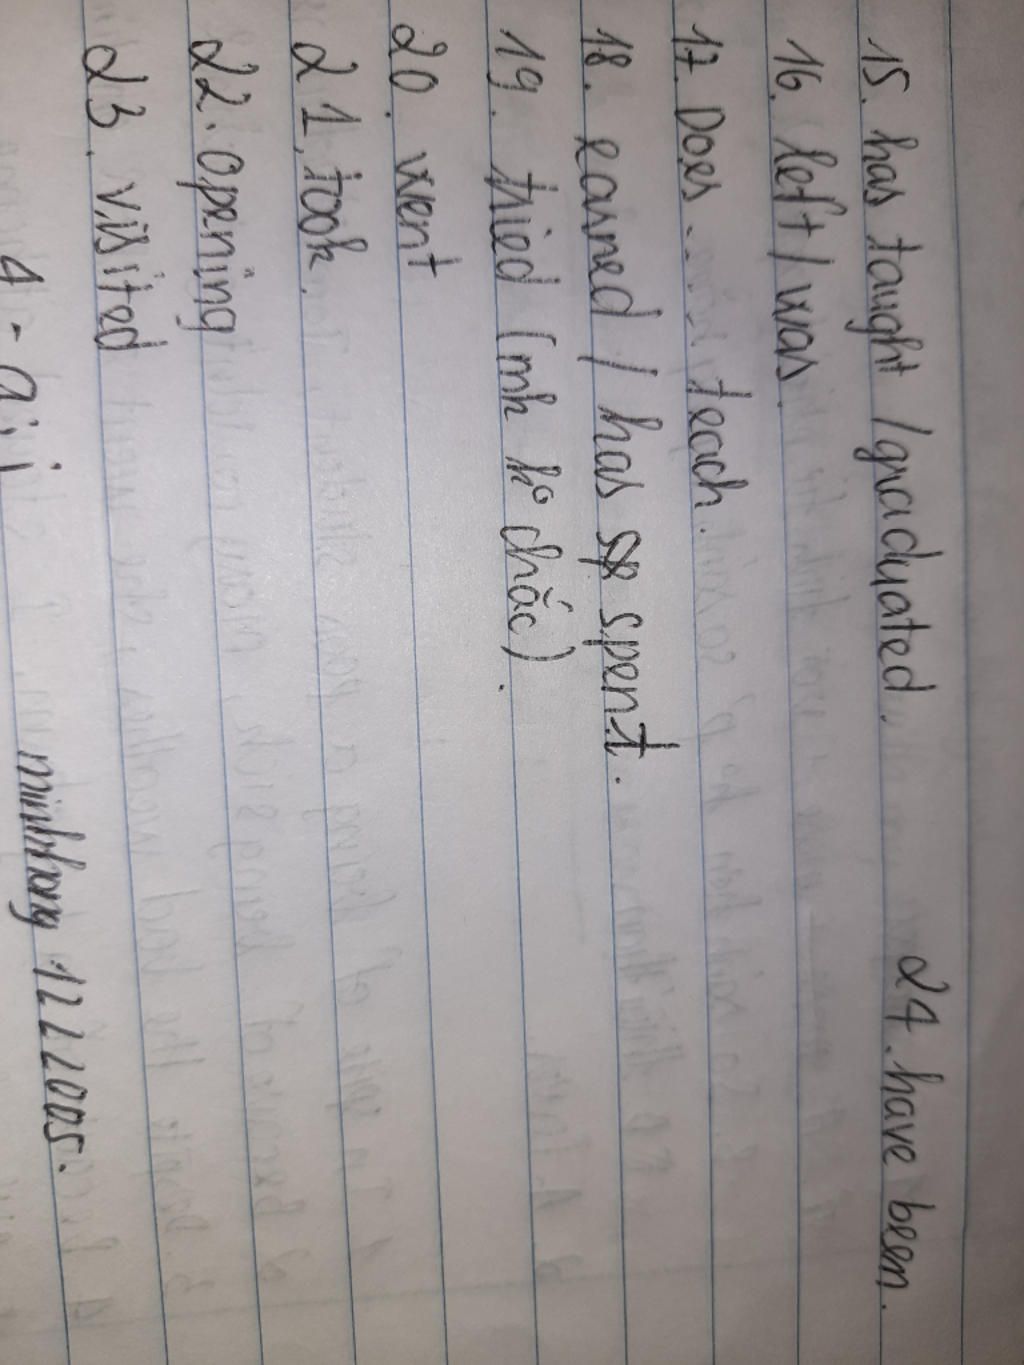 15. has taught / graduated.
24. have been.
16. left / was.
17. Does ... teach.
18. earned / has spent.
19. tried (mk ko chắc).
20. went
21. took.
22. opening
23. visited
minhhong 122005.